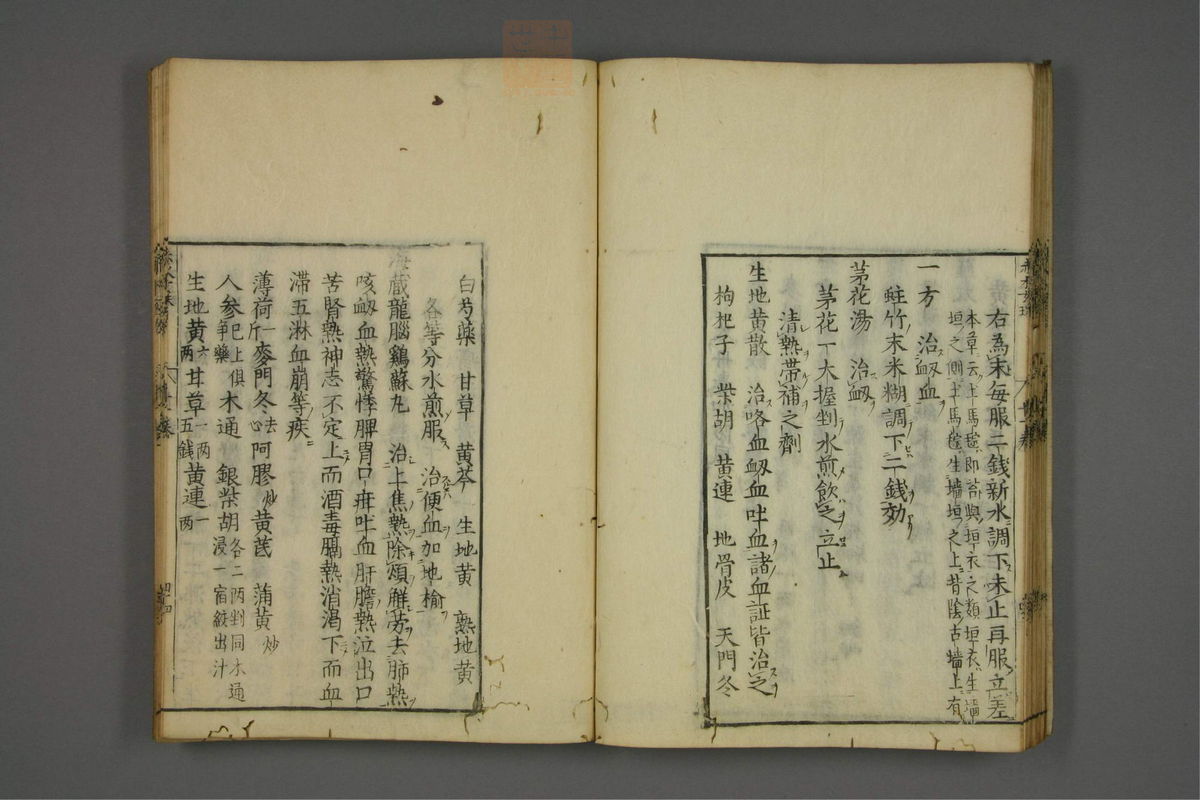 右為末每服二錢新水調下未止再服立差
本草云土馬鬃即苔與垣衣之類垣衣生墻
垣之側土馬鬃生墻垣之上昔陰古墻上有
一方　治衂血
蛀竹末米糊調下二錢効
茅花湯　治衂
茅花一大握剉水煎飲之立止
清熱帯補之劑
生地黄散　治咯血衂血吐血諸血証皆治之
枸杞子　柴胡　黄連　地骨皮　天門冬
白芍藥　甘草　黄芩　生地黄　熟地黄
各等分水煎服　治便血加地榆
海蔵龍腦鷄蘇丸　治上焦熱除煩觧劳去肺熱
咳衂血熱驚悸脾胃口疳吐血肝膽熱泣出口
苦腎熱神志不定上而酒毒膈熱消渇下而血
滞五淋血崩等疾
薄荷一斤麥門冬去心阿膠炒黄芪　蒲黄炒
人參已上俱等藥木通　銀柴胡各二两剉同木通浸一宿絞出汁
生地黄六两甘草一两五錢黄連一两